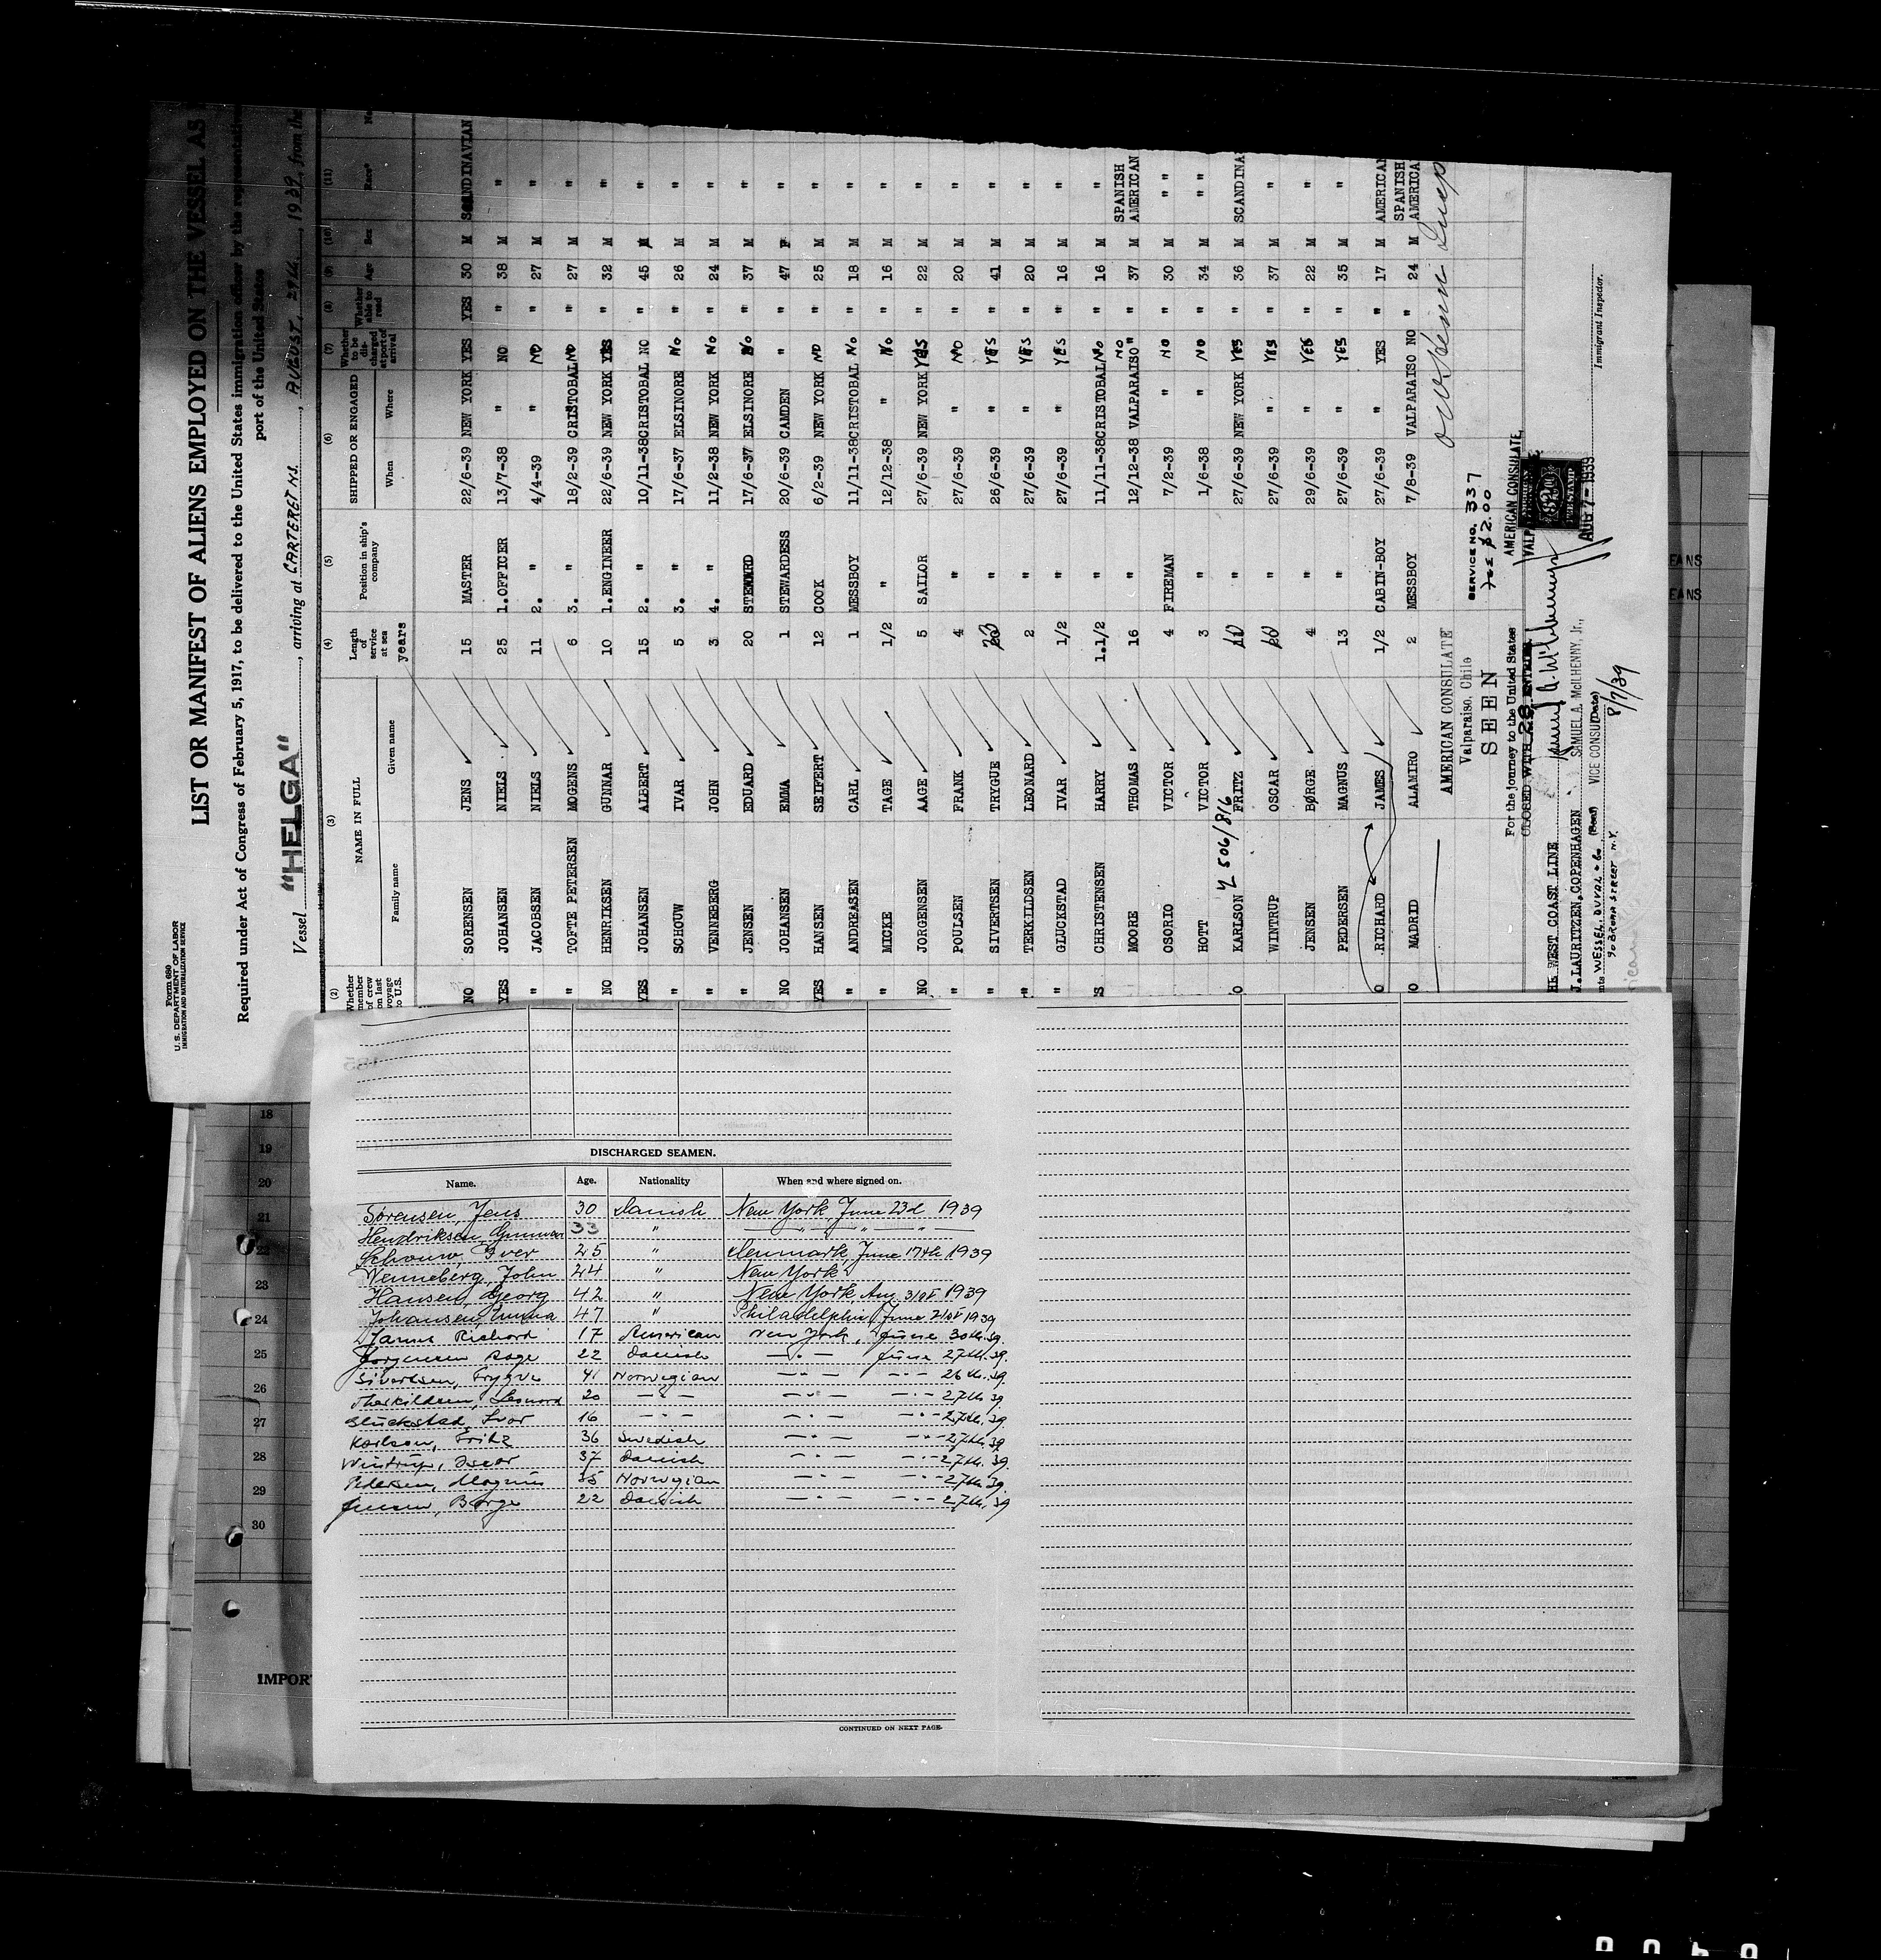 Form 689
U. S. DEPARTMENT OF LABOR
IMMIGRATION AND NATURALIZATION SERVICE
LIST OR MANIFEST OF ALIENS EMPLOYED ON THE VESSEL AS
Required under Act of Congress of February 5, 1917, to be delivered to the United States immigration officer by the representative
port of the United States
Vessel "HELGA", arriving at CARTERET NJ., AUGUST, 29th, 1939, from the
(2) (3) (4) (5) (6) (7) (8) (9) (10) (11)
Whether member of crew on last voyage to U.S. NAME IN FULL Length of service at sea Position in ship's company SHIPPED OR ENGAGED Whether to be discharged at port of arrival Whether able to read Age Sex Race*
Family name Given name years When Where
NO SORENSEN JENS 15 MASTER 22/6-39 NEW YORK YES YES 30 M SCANDINAVIAN
YES JOHANSEN NIELS 25 1.OFFICER 13/7-38 " NO " 38 M "
" JACOBSEN NIELS 11 2. " 4/4-39 " NO " 27 M "
" TOFTE PETERSEN MOGENS 6 3. " 18/2-39 CRISTOBAL NO " 27 M "
NO HENRIKSEN GUNNAR 10 1.ENGINEER 22/6-39 NEW YORK YES " 32 M "
YES JOHANSEN ALBERT 15 2. " 10/11-38 CRISTOBAL NO " 45 M "
" SCHOUW IVAR 5 3. " 17/6-37 ELSINORE No " 26 M "
" VENNEBERG JOHN 3 4. " 11/2-38 NEW YORK No " 24 M "
" JENSEN EDUARD 20 STEWARD 17/6-37 ELSINORE No " 37 M "
NO JOHANSEN EMMA 1 STEWARDESS 20/6-39 CAMDEN " " 47 F "
YES HANSEN SEIFERT 12 COOK 6/2-39 NEW YORK NO " 25 M "
" ANDREASEN CARL 1 MESSBOY 11/11-38 CRISTOBAL No " 18 M "
" MICKE TAGE 1/2 " 12/12-38 " No " 16 M "
NO JORGENSEN AAGE 5 SAILOR 27/6-39 NEW YORK YES " 22 M "
" POULSEN FRANK 4 " 27/6-39 " NO " 20 M "
" SIVERTSEN TRYGUE 20 " 26/6-39 " YES " 41 M "
" TERKILDSEN LEONARD 2 " 27/6-39 " YES " 20 M "
" GLUCKSTAD IVAR 1/2 " 27/6-39 " YES " 16 M "
CHRISTENSEN HARRY 1.1/2 " 11/11-38 CRISTOBAL No " 16 M "
MOORE THOMAS 16 " 12/12-38 VALPARAISO NO " 37 M SPANISH AMERICAN
OSORIO VICTOR 4 FIREMAN 7/2-39 " NO " 30 M " "
HOTT VICTOR 3 " 1/6-38 " NO " 34 M " "
KARLSON FRITZ 10 " 27/6-39 NEW YORK YES " 36 M SCANDINA
WINTRUP OSCAR 20 " 27/6-39 " YES " 37 M "
JENSEN BØRGE 4 " 29/6-39 " YES " 22 M "
PEDERSEN MAGNUS 13 " 27/6-39 " YES " 35 M "
RICHARD JAMES 1/2 CABIN-BOY 27/6-39 " YES " 17 M AMERICAN
MADRID ALAMIRO 2 MESSBOY 7/8-39 VALPARAISO NO " 24 M SPANISH AMERICA
AMERICAN CONSULATE
Valparaiso, Chile
SEEN
For the journey to the United States
CLOSED WITH 28
SERVICE NO. 337
FEE $2.00
AMERICAN CONSULATE,
AUG 7 - 1939
SAMUEL A. McILHENNY, Jr.,
VICE CONSUL
(Date)
8/7/39
WEST COAST LINE
J. LAURITZEN, COPENHAGEN
WESSEL, DUVAL & Co
90 BROAD STREET N.Y.
Immigrant Inspector.
EANS
EANS
18
19
20
21
22
23
24
25
26
27
28
29
30
IMPOR
DISCHARGED SEAMEN.
Name. Age. Nationality When and where signed on.
Sørensen, Jens 30 Danish New York June 23d 1939
Hendriksen, Gunnar 33 " " "
Schouw, Iver 25 " Denmark, June 17th 1939
Venneberg, John 24 " New York
Hansen, Georg 42 " New York, Aug 31st 1939
Johansen, Emma 47 " Philadelphia June 21st 1939
James Richard 17 American New York, June 30th. 39.
Jorgensen Aage 22 Danish — " — June 27th. 39.
Sivertsen, Trygve 41 Norwegian — " — — " — 26th. 39.
Therkildsen, Leonard 20 — " — — " — — " — 27th. 39.
Gluckstad, Ivar 16 — " — — " — — " — 27th. 39.
Karlson, Fritz 36 Swedish — " — — " — 27th. 39.
Wintrup, Oscar 37 Danish — " — — " — 27th. 39.
Pedersen, Magnus 35 Norwegian — " — — " — 27th. 39.
Jensen, Børge 22 Danish — " — — " — 27th. 39
CONTINUED ON NEXT PAGE.